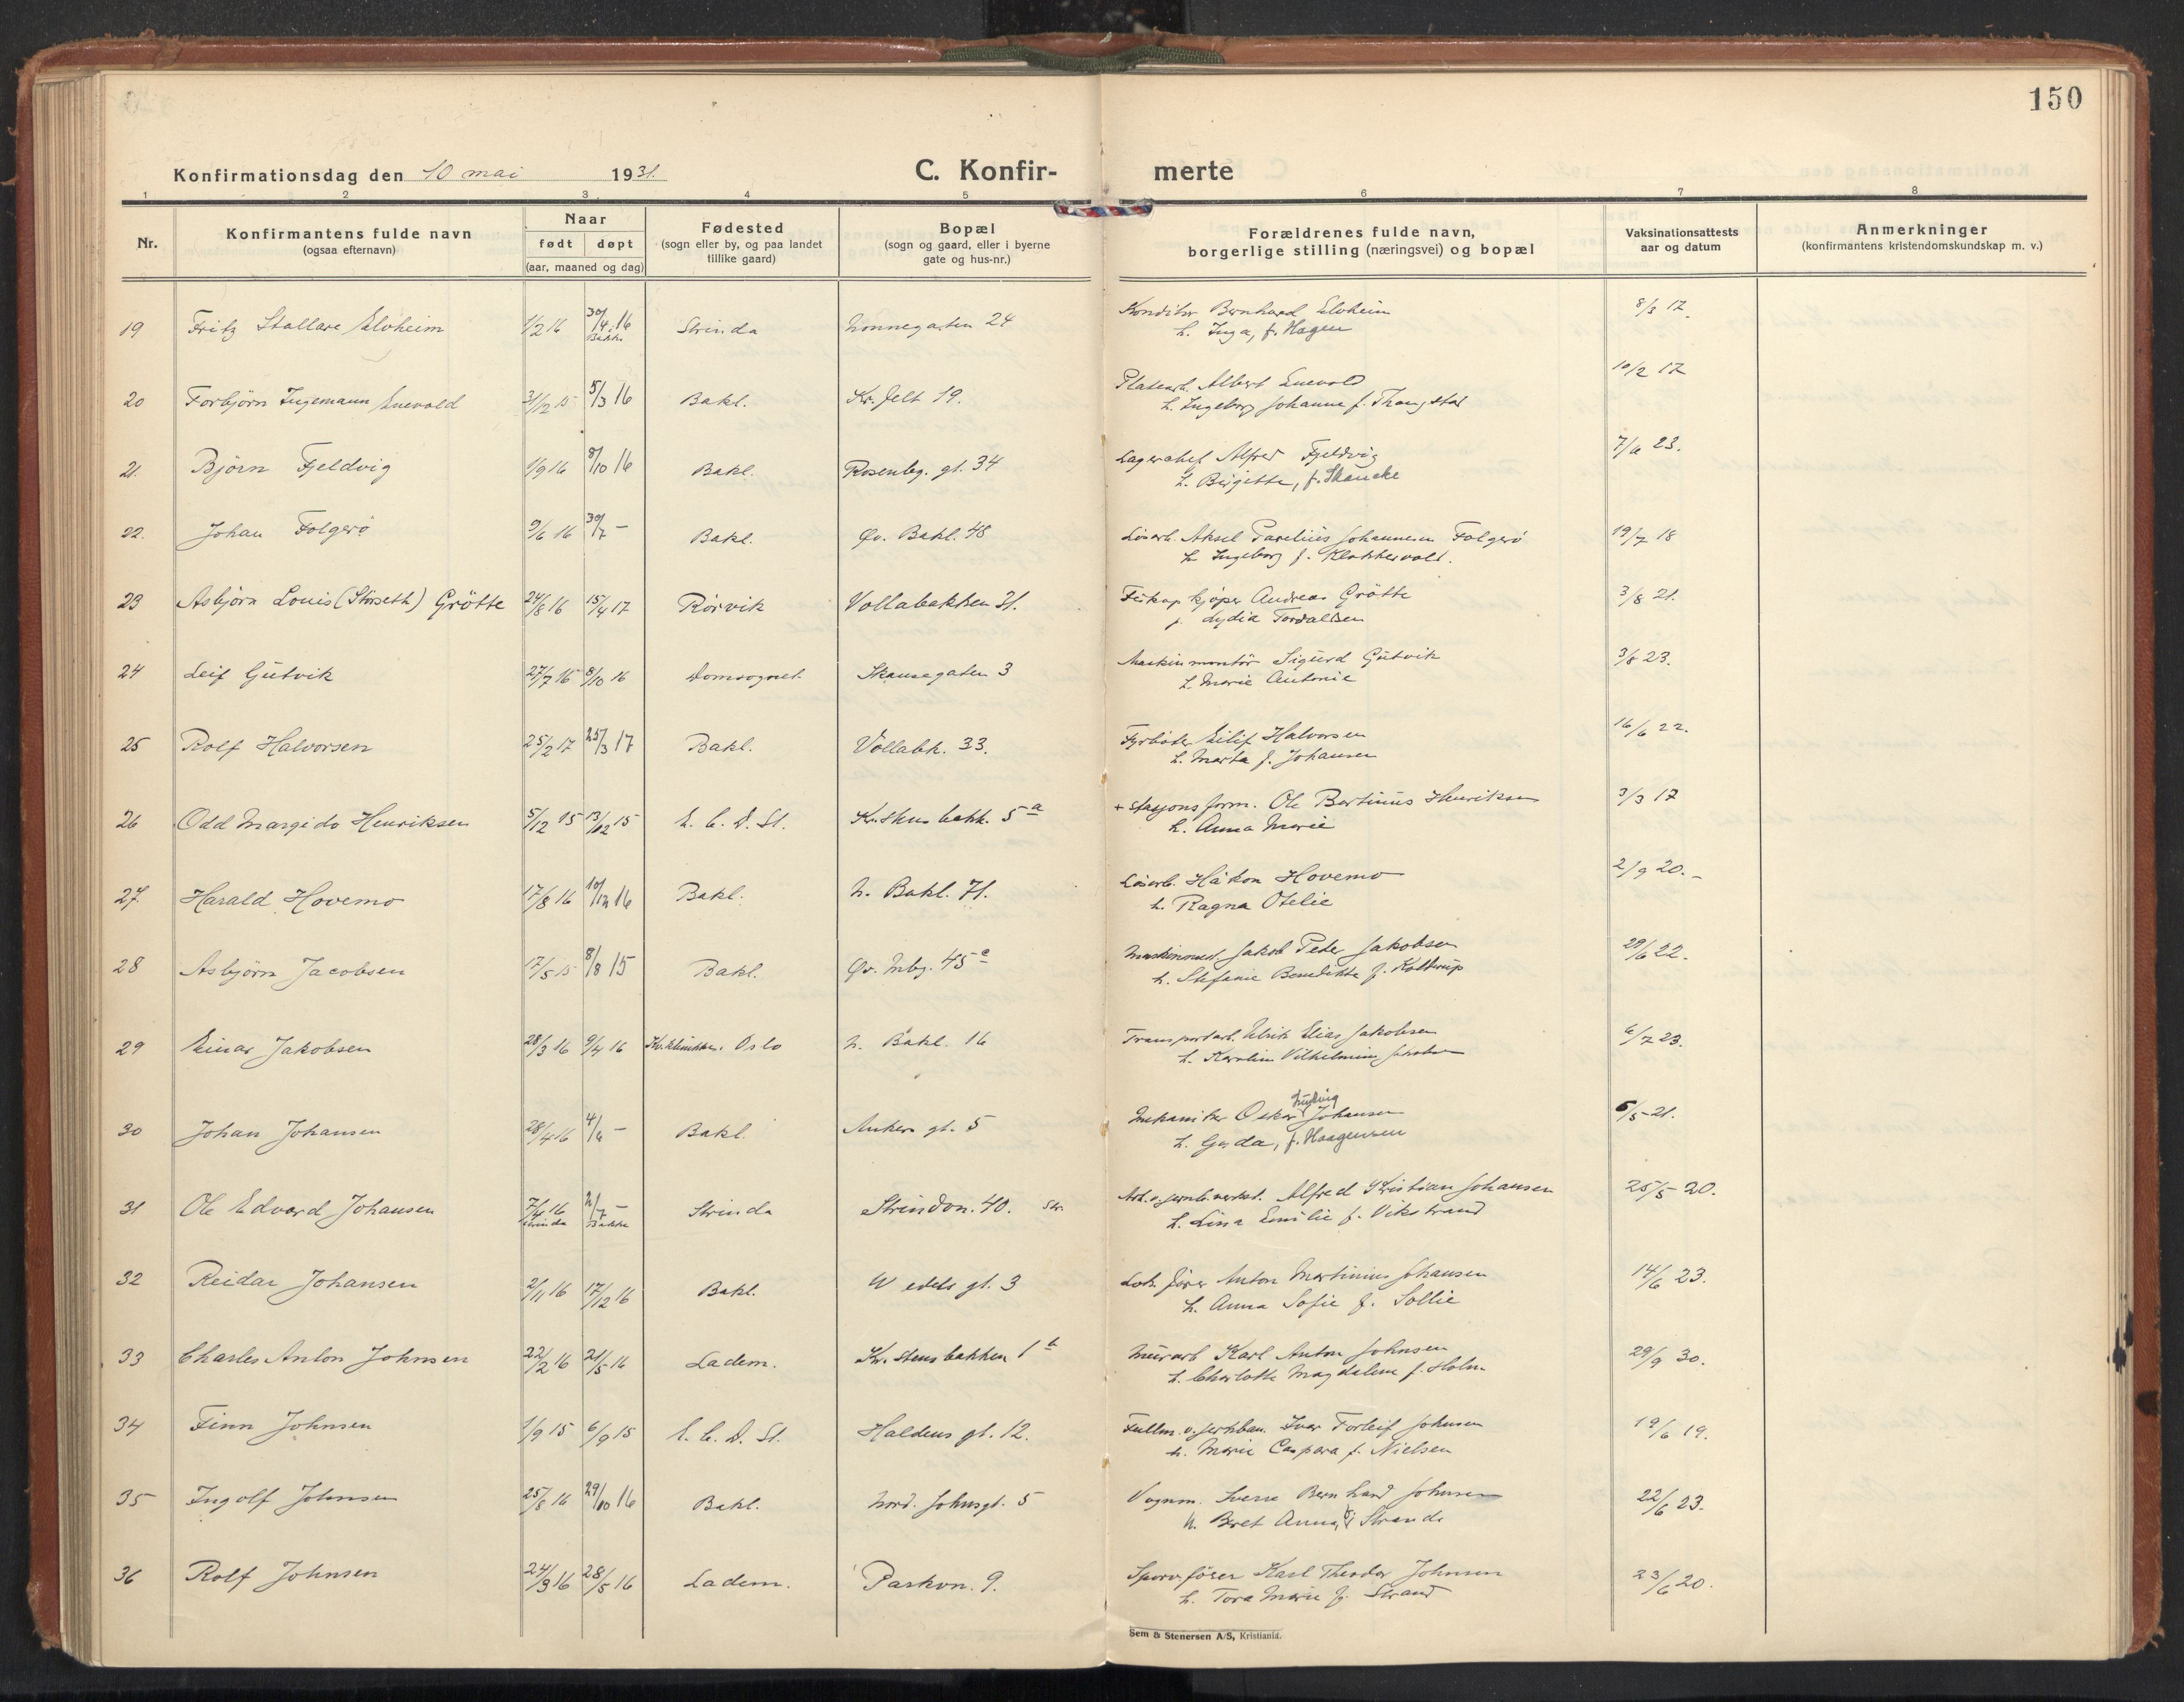 150
Konfirmationsdag den 10 mai 1931.
C. Konfir- merte
1 2 3 4 5 6 7 8
Nr.
Konfirmantens fulde navn
(ogsaa efternavn)
Naar
født døpt
(aar, maaned og dag)
Fødested
(sogn eller by, og paa landet
tillike gaard)
Bopæl
(sogn og gaard, eller i byerne
gate og hus-nr.)
Forældrenes fulde navn,
borgerlige stilling (næringsvei) og bopæl
Vaksinationsattests
aar og datum
Anmerkninger
(konfirmantens kristendomskundskap m. v.)
19 Fritz Stallare Elvheim 1/2 16 30/4 16 Strinda Nonnegaten 24 Konditor Bernhard Elvheim 8/3 17.
Bakke h. Inga, f. Hagen
20 Torbjörn Ingemann Enevold 31/12 15 5/3 16 Bakl. Kr. felt 19. Platearb. Albert Enevold 10/2 17
h. Ingeborg Johanne f.
21. Björn Fjeldvig 1/9 16 8/10 16 Bakl. Rosenbg. gt. 34 Lagerchef Alfred Fjeldvig 7/6 23.
h. Birgitte, f. Skancke
22. Johan Folgerö 9/6 16 30/7 - Bakl. Öv. Bakl. 48 Lösarb. Aksel Parelius Johannesen Folgerö 19/7 18
h. Ingeborg f. Klokkervold.
23 Asbjörn Louis (Störseth) Grötte 24/8 16 15/4 17 Rörvik Vollabakken 31. Fiskopkjöper Andreas Grötte 3/8 21.
f. Lydia Tordalsen
24 Leif Gutvik 27/7 16 8/10 16 Domsognet Skansegaten 3 Maskinmontör Sigurd Gutvik 3/8 23.
h. Marie Antonie
25 Rolf Halvorsen 25/2 17 25/3 17 Bakl. Vollabk. 33. Fyrböter Eilif Halvorsen 16/6 22.
h. Marta f. Johansen
26 Odd Margido Henriksen 5/12 15 13/12 15 E. C. D. St. Kr.stens bakk. 5a + Stasjonsform. Ole Bertinus Henriksen 3/3 17
h. Anna Marie
27. Harald Hovemo 17/8 16 10/12 16 Bakl. N. Bakl. 71. Lösarb. Håkon Hovemo 2/9 20.-
h. Ragna Otelie
28 Asbjörn Jacobsen 17/5 15 8/8 15 Bakl. Öv. Mbg. 45c Jakob Peder Jakobsen 29/6 22.
h. Stefanie Benedikte f.
29 Einar Jakobsen 28/3 16 9/4 16 Kv.klinikken Oslo N. Bakl. 16 Transportarb. Ulrik Elias Jakobsen 6/7 23.
h. Karolin Vilhelmine
30 Johan Johansen 28/4 16 4/6 - Bakl. Ankers gt. 5 Mekaniker Oskar Ludvig Johansen 6/5 21.
h. Gerda, f. Haagensen
31 Ole Edvard Johansen 7/4 16 2/7 - Strinda Strindvn. 40. Str. Arb. v. jernb. verkst. Alfred Kristian Johansen 25/5 20.
Strinda Bakke h. Lina Emilie f. Vikstrand
32 Reidar Johansen 2/11 16 17/12 16 Bakl. Wedels gt. 3 Lok. förer Anton Martinius Johansen 14/6 23.
h. Anna Sofie f. Sollie
33 Charles Anton Johnsen 22/2 16 21/5 16 Ladem. Kr. stens bakken 1b Murarb Karl Anton Johnsen 29/9 30.
h. Charlotte Magdalene f. Holm
34 Finn Johnsen 1/9 15 6/9 15 E. C. D. St. Haldens gt. 12. Fullm. v. jernban. Ivar Torleif Johnsen 19/6 19.
h. Marie Caspara f. Nielsen
35 Ingolf Johnsen 25/8 16 29/10 16 Bakl. Nord. Johnsgt. 5 Vognm. Sverre Bernhard Johnsen 22/6 23.
h. Beret Anna, f. Strande
36 Rolf Johnsen 24/3 16 28/5 16 Ladem. Parkvn. 9. Sporvförer Karl Theodor Johnsen 23/6 20.
h. Tora Marie f. Strand
Sem & Stenersen A/S, Kristiania.